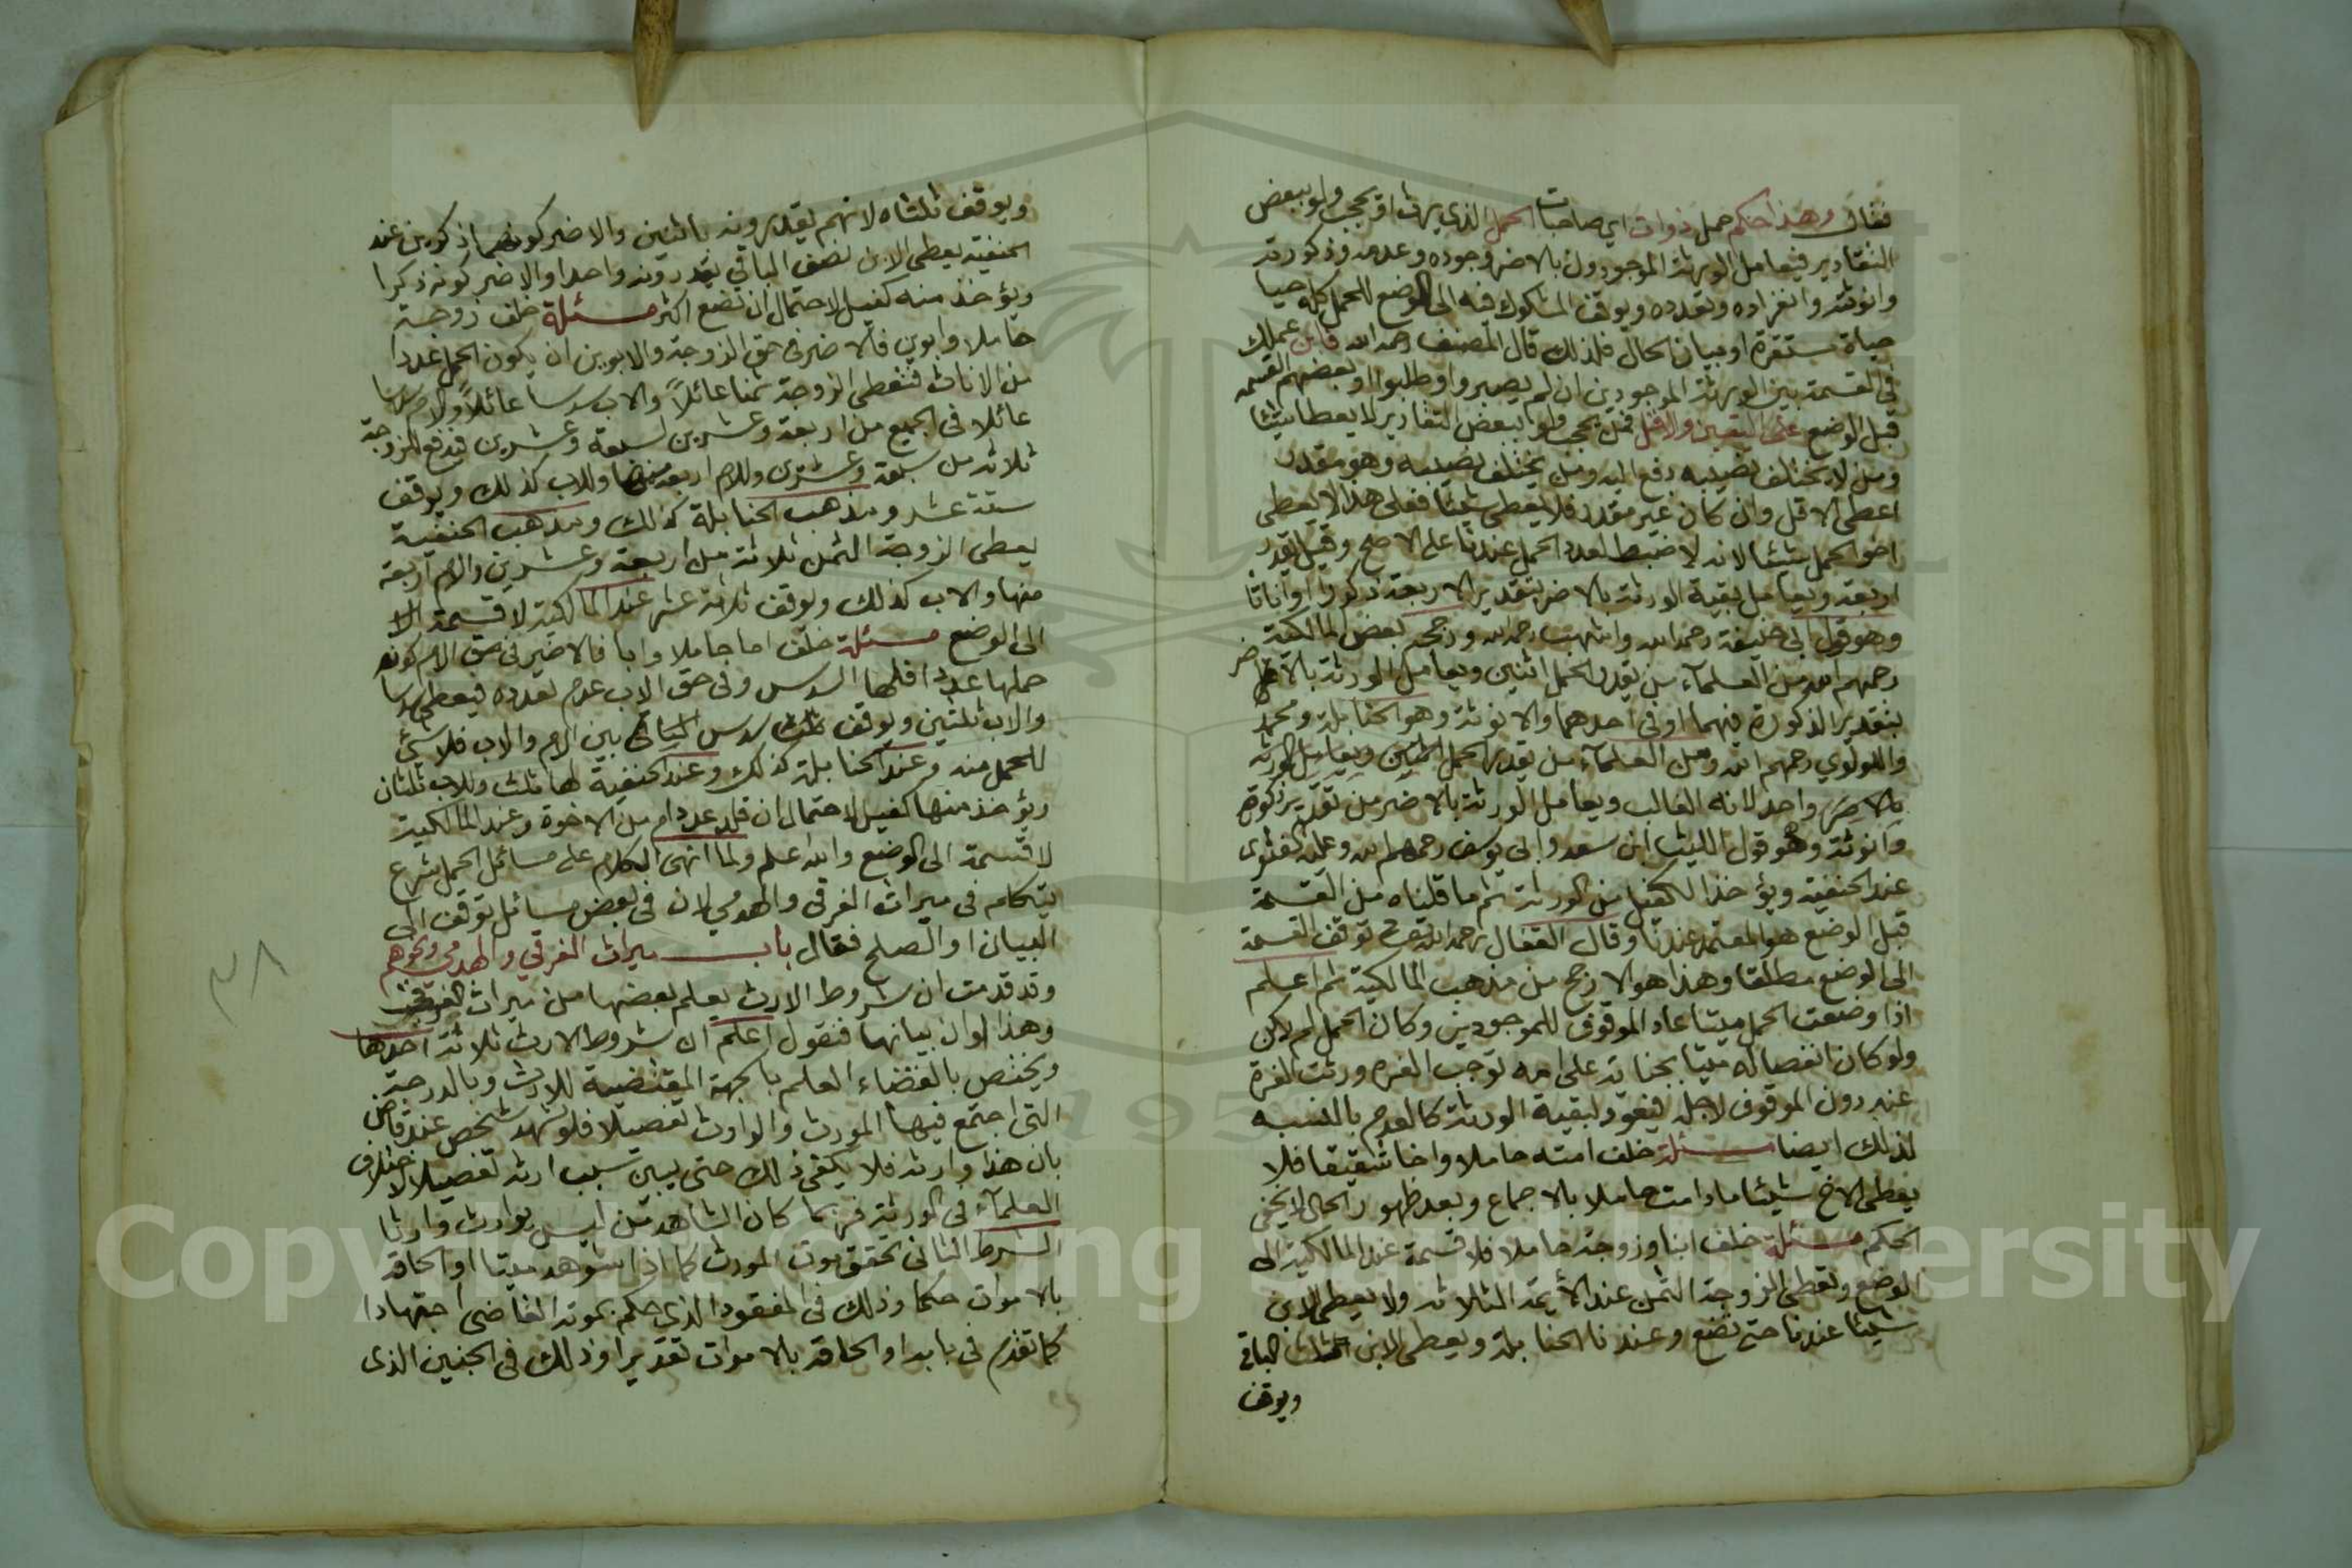 فقال وهكذا حكم حمل ذوات اي صاحبات الحمل الذي يرث او يحجب ولو ببعض
التقادير فيعامل الورثة الموجودون بالاضر وجوده وعدمه وذكورته
وانوثته وانفراده وتعدده ويوقف المشكوك فيه الى الوضع للحمل كله حيا
حياة مستقرة او بيان الحال فلذلك قال المصنف رحمه الله فابن عملك
في القسمة بين الورثة الموجودين ان لم يصبروا وطلبوا او بعضهم القسمه
قبل الوضع على اليقين والاقل فمن يحجب ولو ببعض التقادير لا يعطا شيئا
ومن لا يختلف نصيبه دفع اليه ومن يختلف نصيبه وهو مقدر
اعطى الاقل وان كان غير مقدر فلا يعطى شيئا فعلى هذا لا يعطى
اخو الحمل شيئا لانه لا ضبط لعدد الحمل عندنا على الاصح وقيل يقدر
اربعة ويعامل بقية الورثة بالاضر بتقدير الاربعة ذكورا او اناثا
وهو قول ابي حنيفة رحمه الله واشهب رحمه الله ورجحه بعض المالكية
رحمهم الله ومن العلمآء من يقدر الحمل اثنين ويعامل الورثة بالاضر
بتقدير الذكورة فيهما او في احدهما والانوثة وهو الحنابلة ومحمد
واللولوي رحمهم الله ومن العلمآء من يقدر الحمل ويعامل الورثة
بالاضر واحد لانه الغالب ويعامل الورثة بالاضر من تقدير ذكورة
وانوثة وهو قول الليث ابن سعد وابي يوسف رحمهم الله وعليه الفتوى
عند الحنفية ويؤخذ الكفيل من الورثة ثم ما قلناه من القسمة
قبل الوضع هو المعتمد عندنا وقال القفال رحمه الله توقف القسمة
الى الوضع مطلقا وهذا هو الارجح من مذهب المالكية ثم اعلم
اذا وضعت الحمل ميتا عاد الموقوف للموجودين وكان الحمل لم يكن
ولو كان انفصاله ميتا بجناية على امه توجب الغره ورثت الغرة
عنه دون الموقوف لاجله فيعود لبقية الورثة كالعدم بالنسبه
لذلك ايضا مسئلة خلف امته حاملا واخا شقيقا فلا
يعطى الاخ شيئا مادامت حاملا بالاجماع وبعد ظهور الحال لا يخفى
الحكم مسئلة خلف ابنا وزوجة حاملا فلا قسمة عند المالكية الى
الوضع وتعطى الزوجة الثمن عند الأئمة الثلاثه ولا يعطى الابن
شيئا عندنا حتى تضع وعندنا الحنابلة ويعطى الابن ثلث الباقي
ويوقف
ويوقف ثلثاه لانهم يقدرونه باثنين والاضر كونهما ذكورين عند
الحنفية يعطى الابن نصف الباقي يقدرونه واحدا والاضر كونه ذكرا
ويؤخذ منه كفيل لاحتمال ان تضع اكثر مسئلة خلف زوجة
حاملا وابوين فالاضر في حق الزوجة والابوين ان يكون الحمل عددا
من الاناث فتعطى الزوجة ثمنا عائلاً والاب سدسا عائلاً والام سدسا
عائلا في الجميع من اربعة وعشرين لسبعة وعشرين فيدفع للزوجة
ثلاثة من سبعة وعشرين وللام اربعة منها وللاب كذلك ويوقف
ستة عشر ومذهب الحنابلة كذلك ومذهب الحنفية
يعطى الزوجة الثمن ثلاثة من اربعة وعشرين والام اربعة
منها والاب كذلك ويوقف ثلاثة عشر عند المالكية لا قسمة الا
الى الوضع مسئلة خلف اما حاملا وابا فالاضر في حق الام كونه
حملها عددا فلها السدس وفي حق الاب عدم تعدده فيعطى سدسا
والاب ثلثين ويوقف سدس الباقي بين الام والاب فلا شئ
للحمل منه وعند الحنابلة كذلك وعند الحنفية لها ثلث وللاب ثلثان
ويؤخذ منها كفيل لاحتمال ان تلد عددا من الاخوة وعند المالكية
لا قسمة الى الوضع والله اعلم ولما انهى الكلام على مسائل الحمل شرع
يتكلم في ميراث الغرقى والهدمى لان في بعض مسائل توقف الى
البيان او الصلح فقال باب ميراث الغرقي والهدمى ونحوهم
وقد قدمت ان شروط الارث يعلم بعضها من ميراث الغرقى
وهذا اوان بيانها فنقول اعلم ان شروط الارث ثلاثة احدها
ويختص بالقضاء العلم بالجهة المقتضية للارث وبالدرجة
التي اجتمع فيها المورث والوارث تفصيلا فلو شهد شخص عند قاض
بان هذا وارثه فلا يكفي ذلك حتى يبين سبب ارثه تفصيلا لاختلاف
العلمآء في الورثة فربما كان الشاهد من ليس بوارث وارثا
الشرط الثاني تحقق موت المورث كما اذا شوهد ميتا او الحاقه
بالاموات حكما وذلك في المفقود الذي حكم بموته القاضى اجتهادا
كما تقدم في بابه او الحاقه بالاموات تقديرا وذلك في الجنين الذى
٣٨
Copyright © King Saud University
195